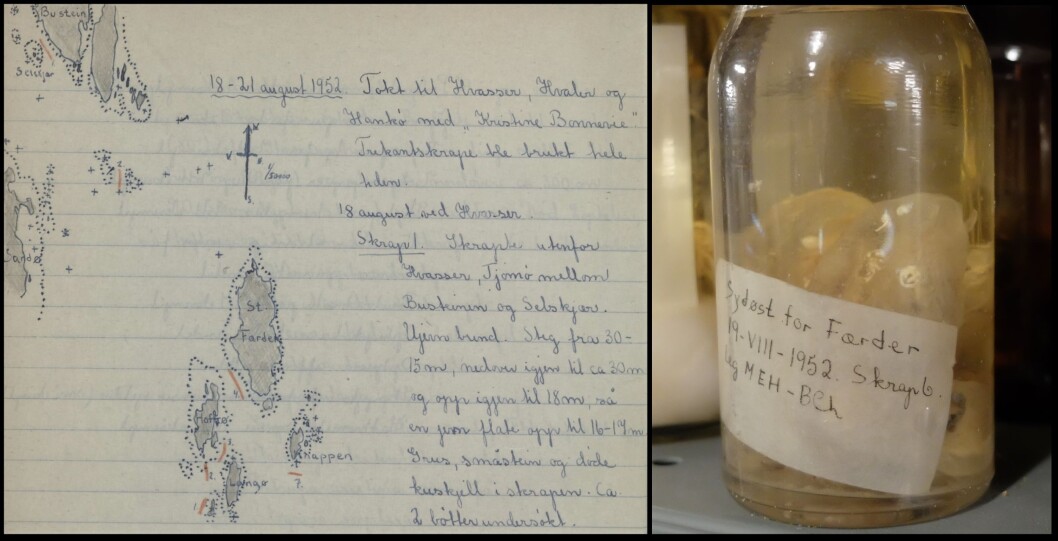 Bustein
18-21 august 1952 Tokt til Hvasser, Hvaler og
Hankø med „Kristine Bonnevie".
Trekantskrape ble brukt hele
tiden.
1/50000
18 august ved Hvasser.
Skrap 1. Skrapte utenfor
Hvasser, Tjømø mellom
Busteinen og Selskjær.
Ujevn bunn. Steg fra 30-
15m, nedover igjen til ca 30m
og opp igjen til 18m, så
en jevn flate opp til 16-17m.
Grus, småstein og døde
kuskjell i skrapen. Ca.
2 bøtter undersøkt.
St.
Færder
Knappen
Langø
7.
Sydøst for Færder
19-VIII-1952. Skrap 6.
leg MEH-BCh